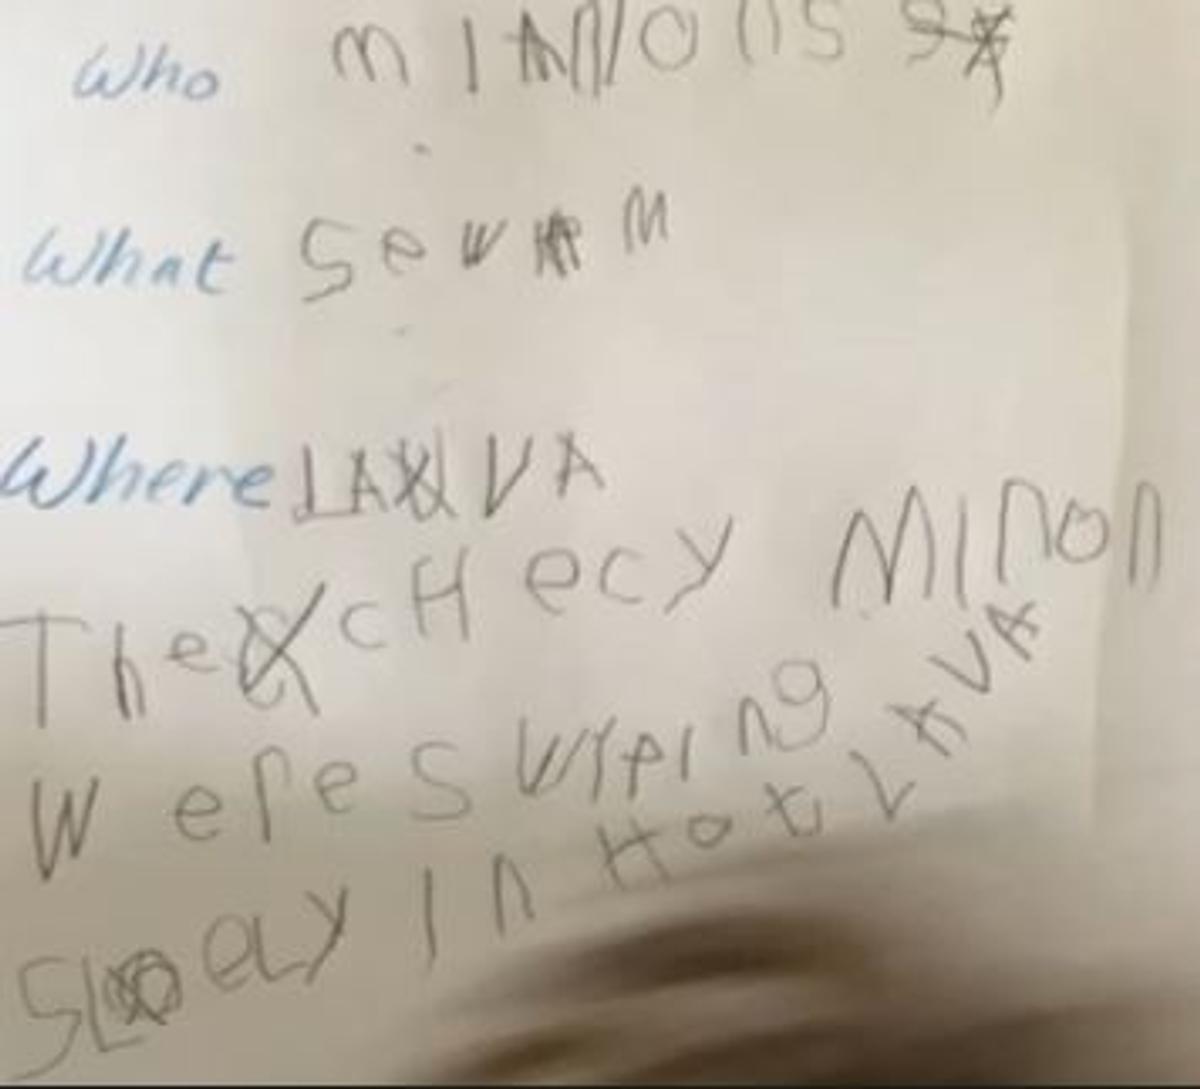 Who MINIONS
What SeW M
Where LAVA
The cHecy MINon
Wepe SWIPING
SLOELY In HOt LAVA